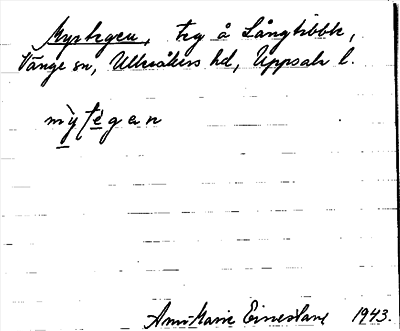 Myrtegen, Teg å Långtibble,
Vänge sn, Ulleråkers hd, Uppsala l.
mỳt̀egan
Ann-Marie 1943.